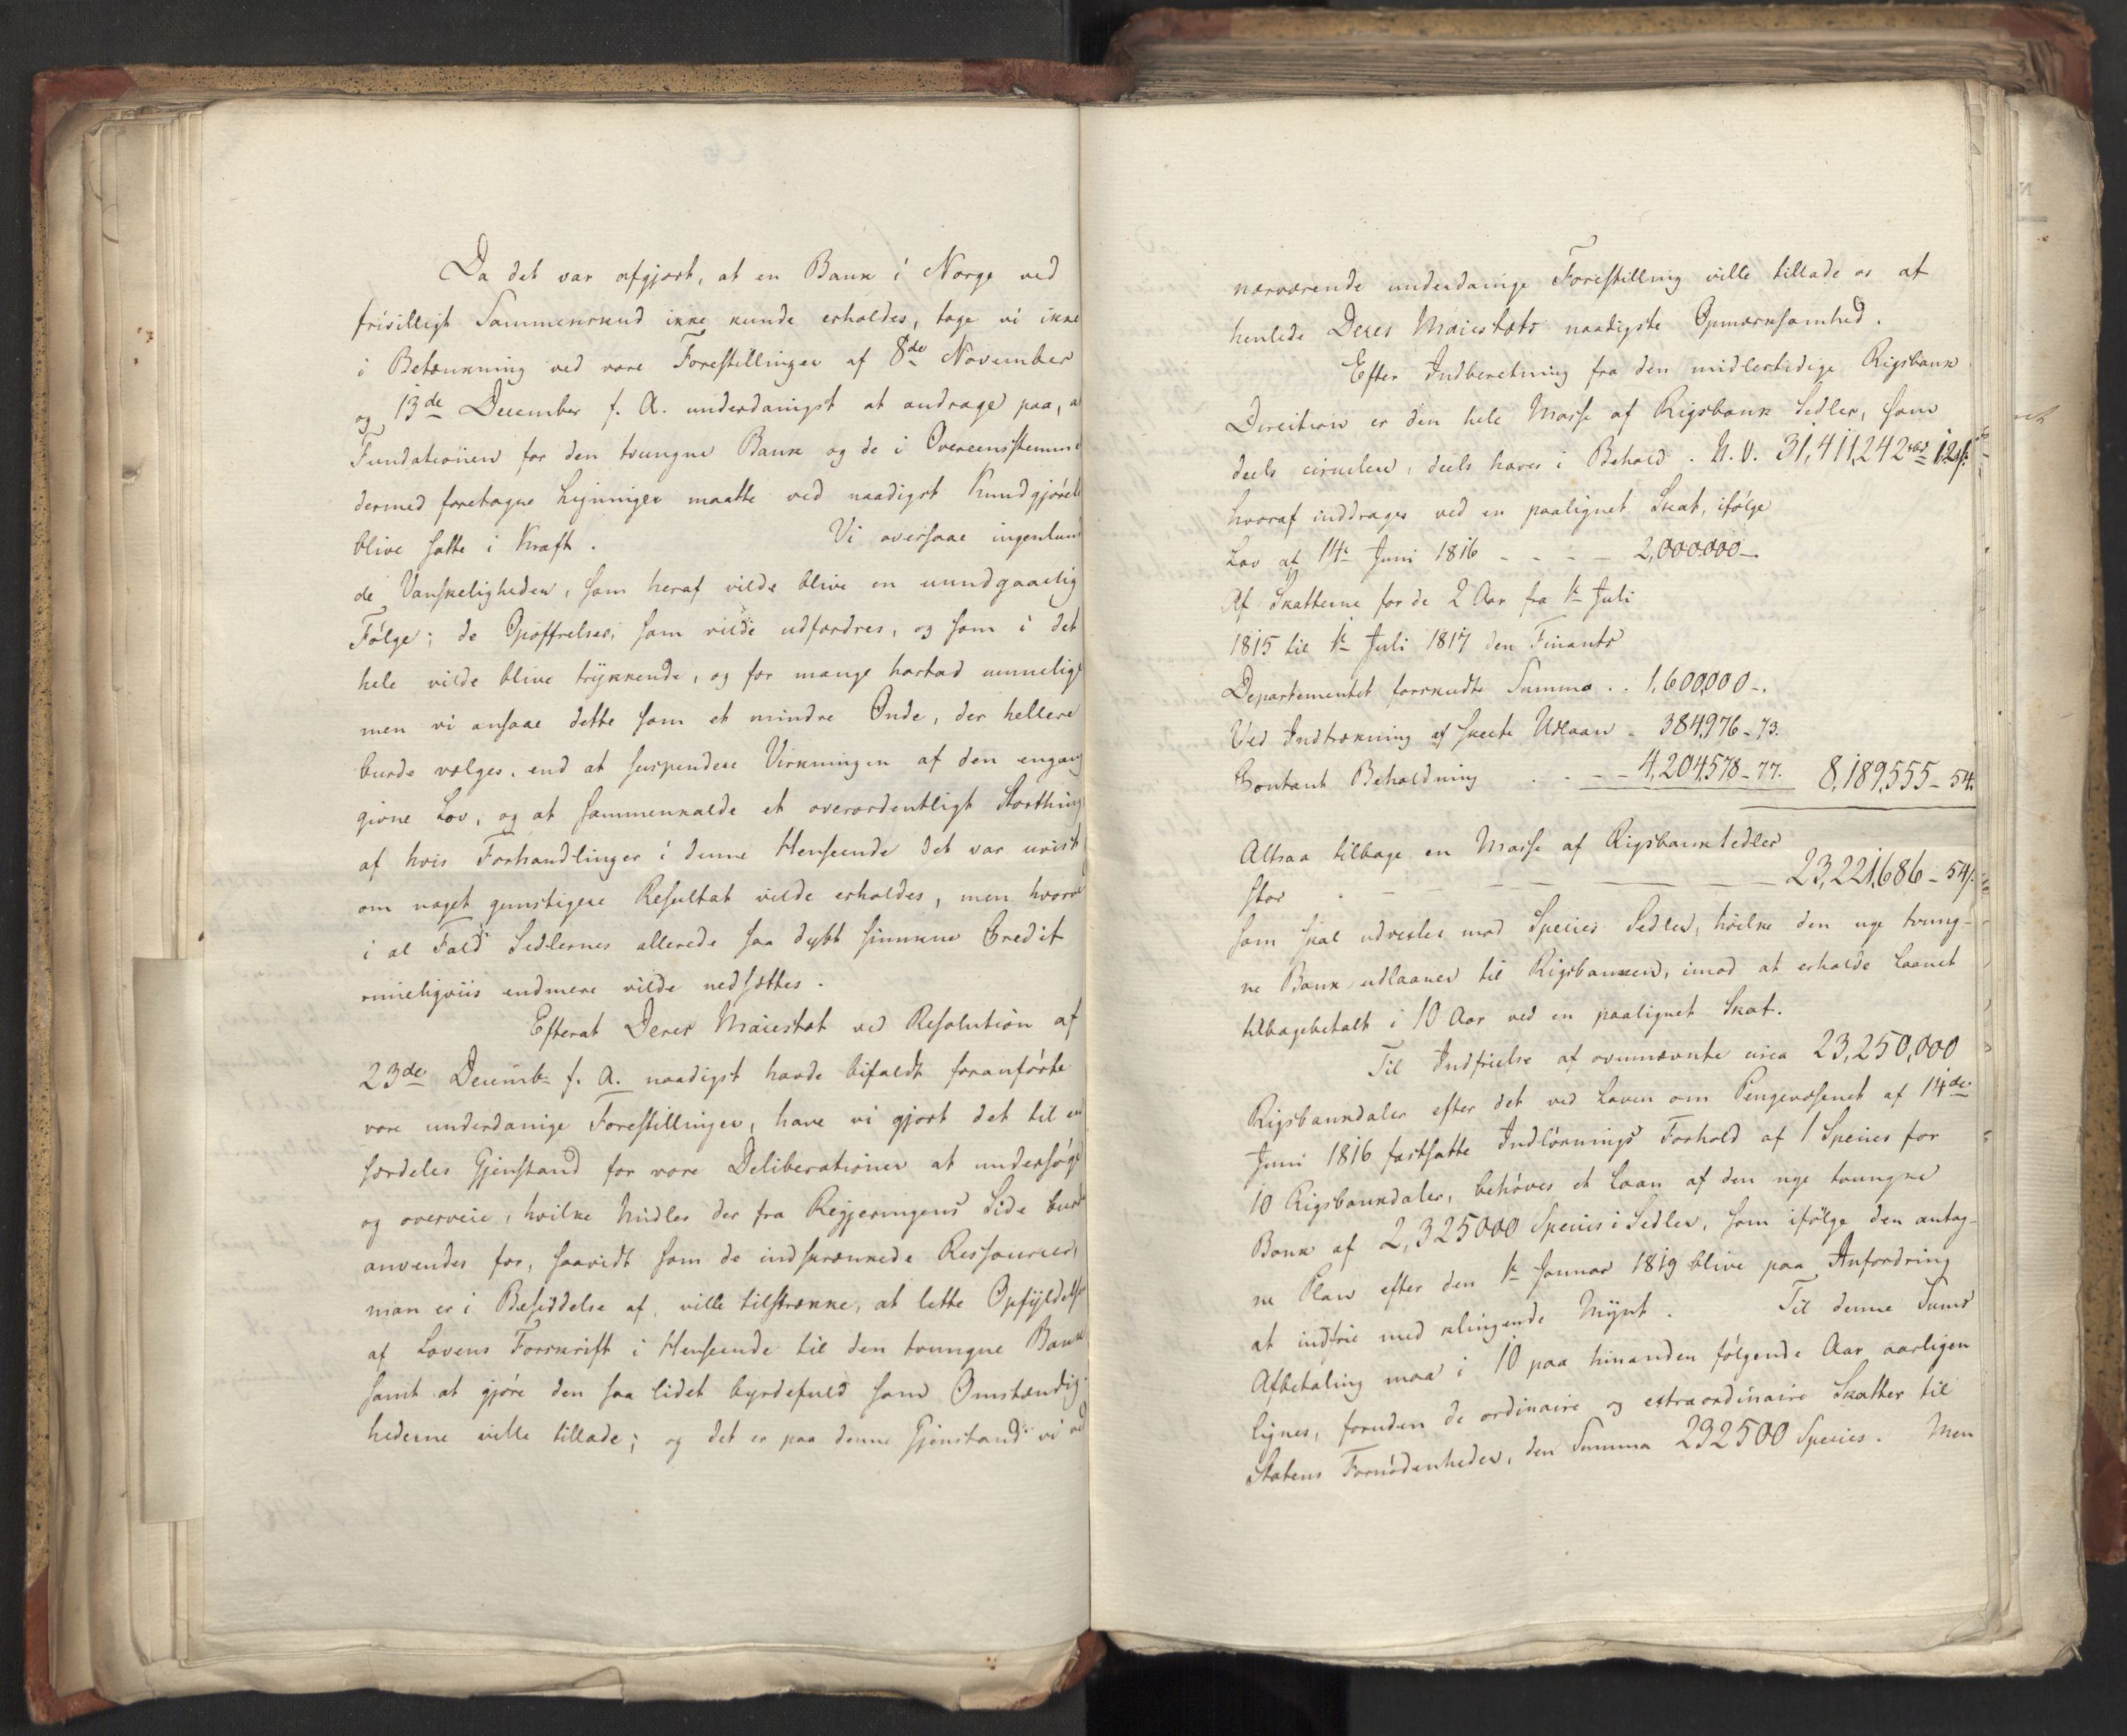 Da det var afgjort, at en Bank i Norge ved
frivilligt Sammenskud ikke kunde erholdes, toge vi ikke
i Betænkning ved vore Forestillinger af 8de November
og 13de December f. A. underdanigst at andrage paa, a
Fundationen for den tvungne Bank og de i Overeensstemme
dermed foretagne Ligninger maatte ved naadigst Kundgjørels
blive satte i Kraft. Vi oversaae ingenlun
de Vanskeligheder, som heraf vilde blive en uundgaaelig
Følge; de Opoffrelser, som vilde udfordres, og som i det
hele vilde blive trykkende, og for mange haртad
men vi ansaae dette som et mindre Onde, der hellere
burde vælges, end at suspendere Virkningen af den engang
givne Lov, og at sammenkalde et overordentligt Storthing
af hvis Forhandlinger i denne Henseende det var uvist
om noget gunstigere Resultat vilde erholdes, men hvorve
i al Fald Sedlernes allerede saa dybt siunkne Credit
rimeligviis endmere vilde nedsættes.
Efterat Deres Maiestæt ved Resolution af
23de Decemb: f. A. naadigst havde bifaldt foranførte
vore underdanige Forestillinger, have vi gjort det til en
særdeles Gjenstand for vore Deliberationer at undersøge
og overveie, hvilke Midler der fra Regjeringens Side burd
anvendes for, saavidt som de indskrænkede Ressourcer,
man er i Besiddelse af, ville tilstrække, at lette Opfyldelse
af Lovens Forskrift i Henseende til den tvungne Bank
samt at gjøre den saa lidet byrdefuld som Omstændig-
hederne ville tillade; og det er paa denne Gjenstand vi ved
nærværende underdanige Forestilling ville tillade os at
henlede Deres Maiestæts naadigste Opmærksomhed.
Efter Indberetning fra den midlertidige Rigsbank
Direction er den hele Masse af Rigsbank Sedler, som
deels circulere, deels haves i Behold. N. V. 31,411,242 rbd 12 s.
hvoraf inddrages ved en paalignet Skat, ifølge
Lov af 14de Juni 1816 - - - - 2,000000 -.
Af Skatterne for de 2 Aar fra 1ste Juli
1815 til 1ste Juli 1817 den Finants
Departementet forskudte Summa .. 1,600,000 -.
Ved Indtrækning af skeete Udlaan - 384,976 - 73.
Contant Behældning . . - - 4,204,578 - 77. 8,189,555 - 54.
Altsaa tilbage en Masse af Rigsbanksedler
stor - - - - - 23,221,686 - 54 s.
som skal udvexles mod Species Sedler, hvilke den nye tvung-
ne Bank udlaaner til Rigsbanken, imod at erholde Laanet
tilbagebetalt i 10 Aar ved en paalignet Skat.
Til Indfrielse af ovennævnte circa 23,250,000
Rigsbankdaler efter det ved Loven om Pengevæsenet af 14de
Juni 1816 fastsatte Indløsnings Forhold af 1 Species for
10 Rigsbankdaler, behøves et Laan af den nye tvungne
Bank af 2,325000 Species i Sedler, som ifølge den antag-
ne Plan efter den 1ste Januar 1819 blive paa Anfordring
at indfrie med klingende Mynt. Til denne Sums
Afbetaling maa i 10 paa hinanden følgende Aar aarligen
lignes, foruden de ordinaire og extraordinaire Skatter til
Statens Fornødenheder, den Summa 232500 Species. Men